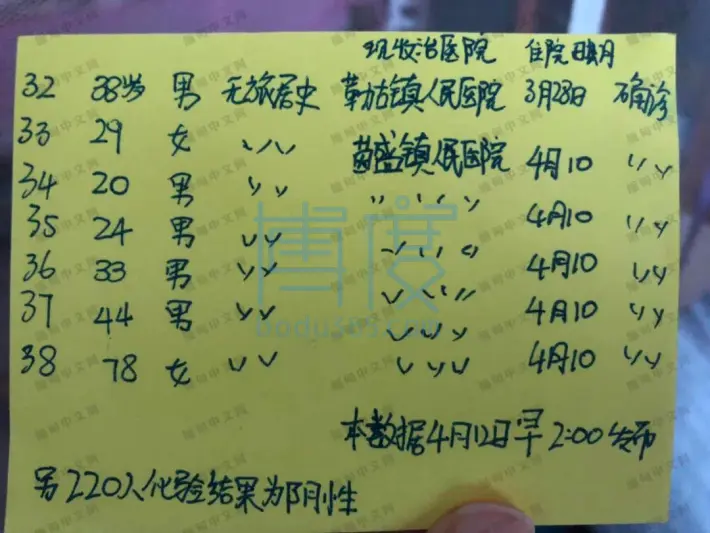 现收治医院 住院日期
32 38岁 男 无旅居史 勒枯镇人民医院 3月23日 确诊
33 29 女 〃 苗盛镇人民医院 4月10 〃
34 20 男 〃 〃 4月10 〃
35 24 男 〃 〃 4月10 〃
36 33 男 〃 〃 4月10 〃
37 44 男 〃 〃 4月10 〃
38 78 女 〃 〃 4月10 〃
本数据4月12日早2:00发布
另220人化验结果为阴性
博度
bodu363.com
缅甸中文网